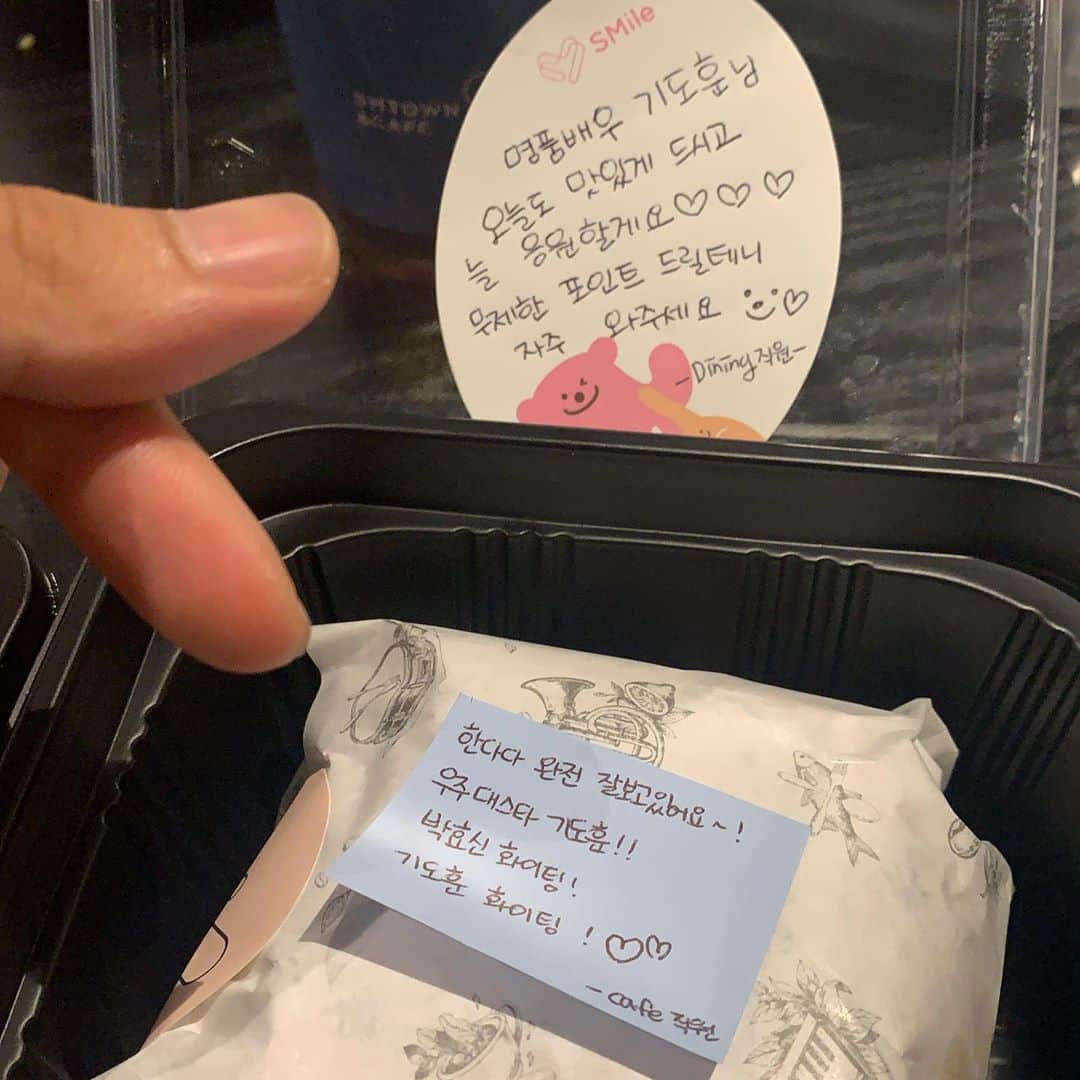 SMile
명품배우 기도훈님
오늘도 맛있게 드시고
늘 응원할게요♡♡♡
무제한 포인트 드릴테니
자주 와주세요 ♡
-Dining직원-
SMTOWN
&CAFE
한다다 완전 잘보고있어요~!
우주대스타 기도훈!!
박효신 화이팅!!
기도훈 화이팅 !♡♡
-cafe 직원